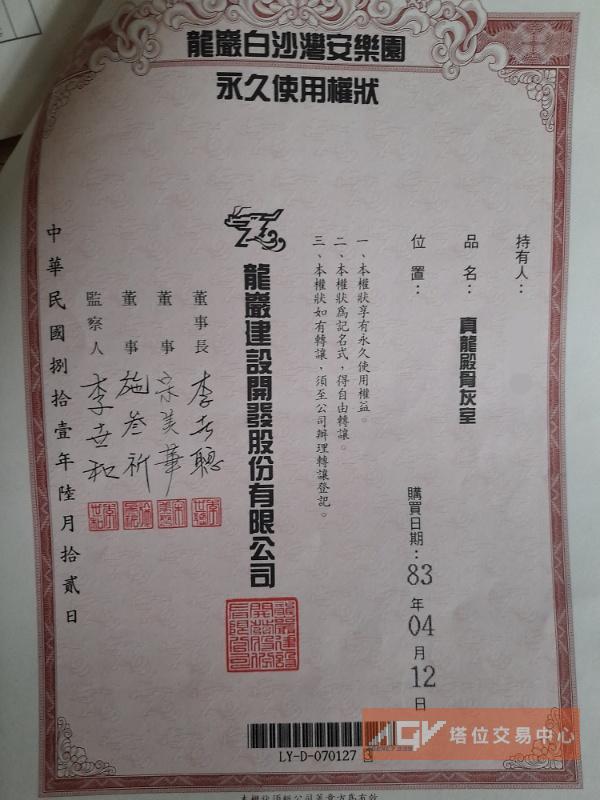 龍巖白沙灣安樂園
永久使用權狀
持有人：
品名：真龍殿骨灰室
位置：
購買日期：83年04月12日
一、本權狀享有永久使用權益。
二、本權狀為記名式，得自由轉讓。
三、本權狀如有轉讓，須至公司辦理轉讓登記。
龍巖建設開發股份有限公司
董事長 李世聰
董事 宗美華
董事 施叁祈
監察人 李世和
中華民國捌拾壹年陸月拾貳日
LY-D-070127 3
AGV 塔位交易中心
本權狀須經公司蓋章方為有效